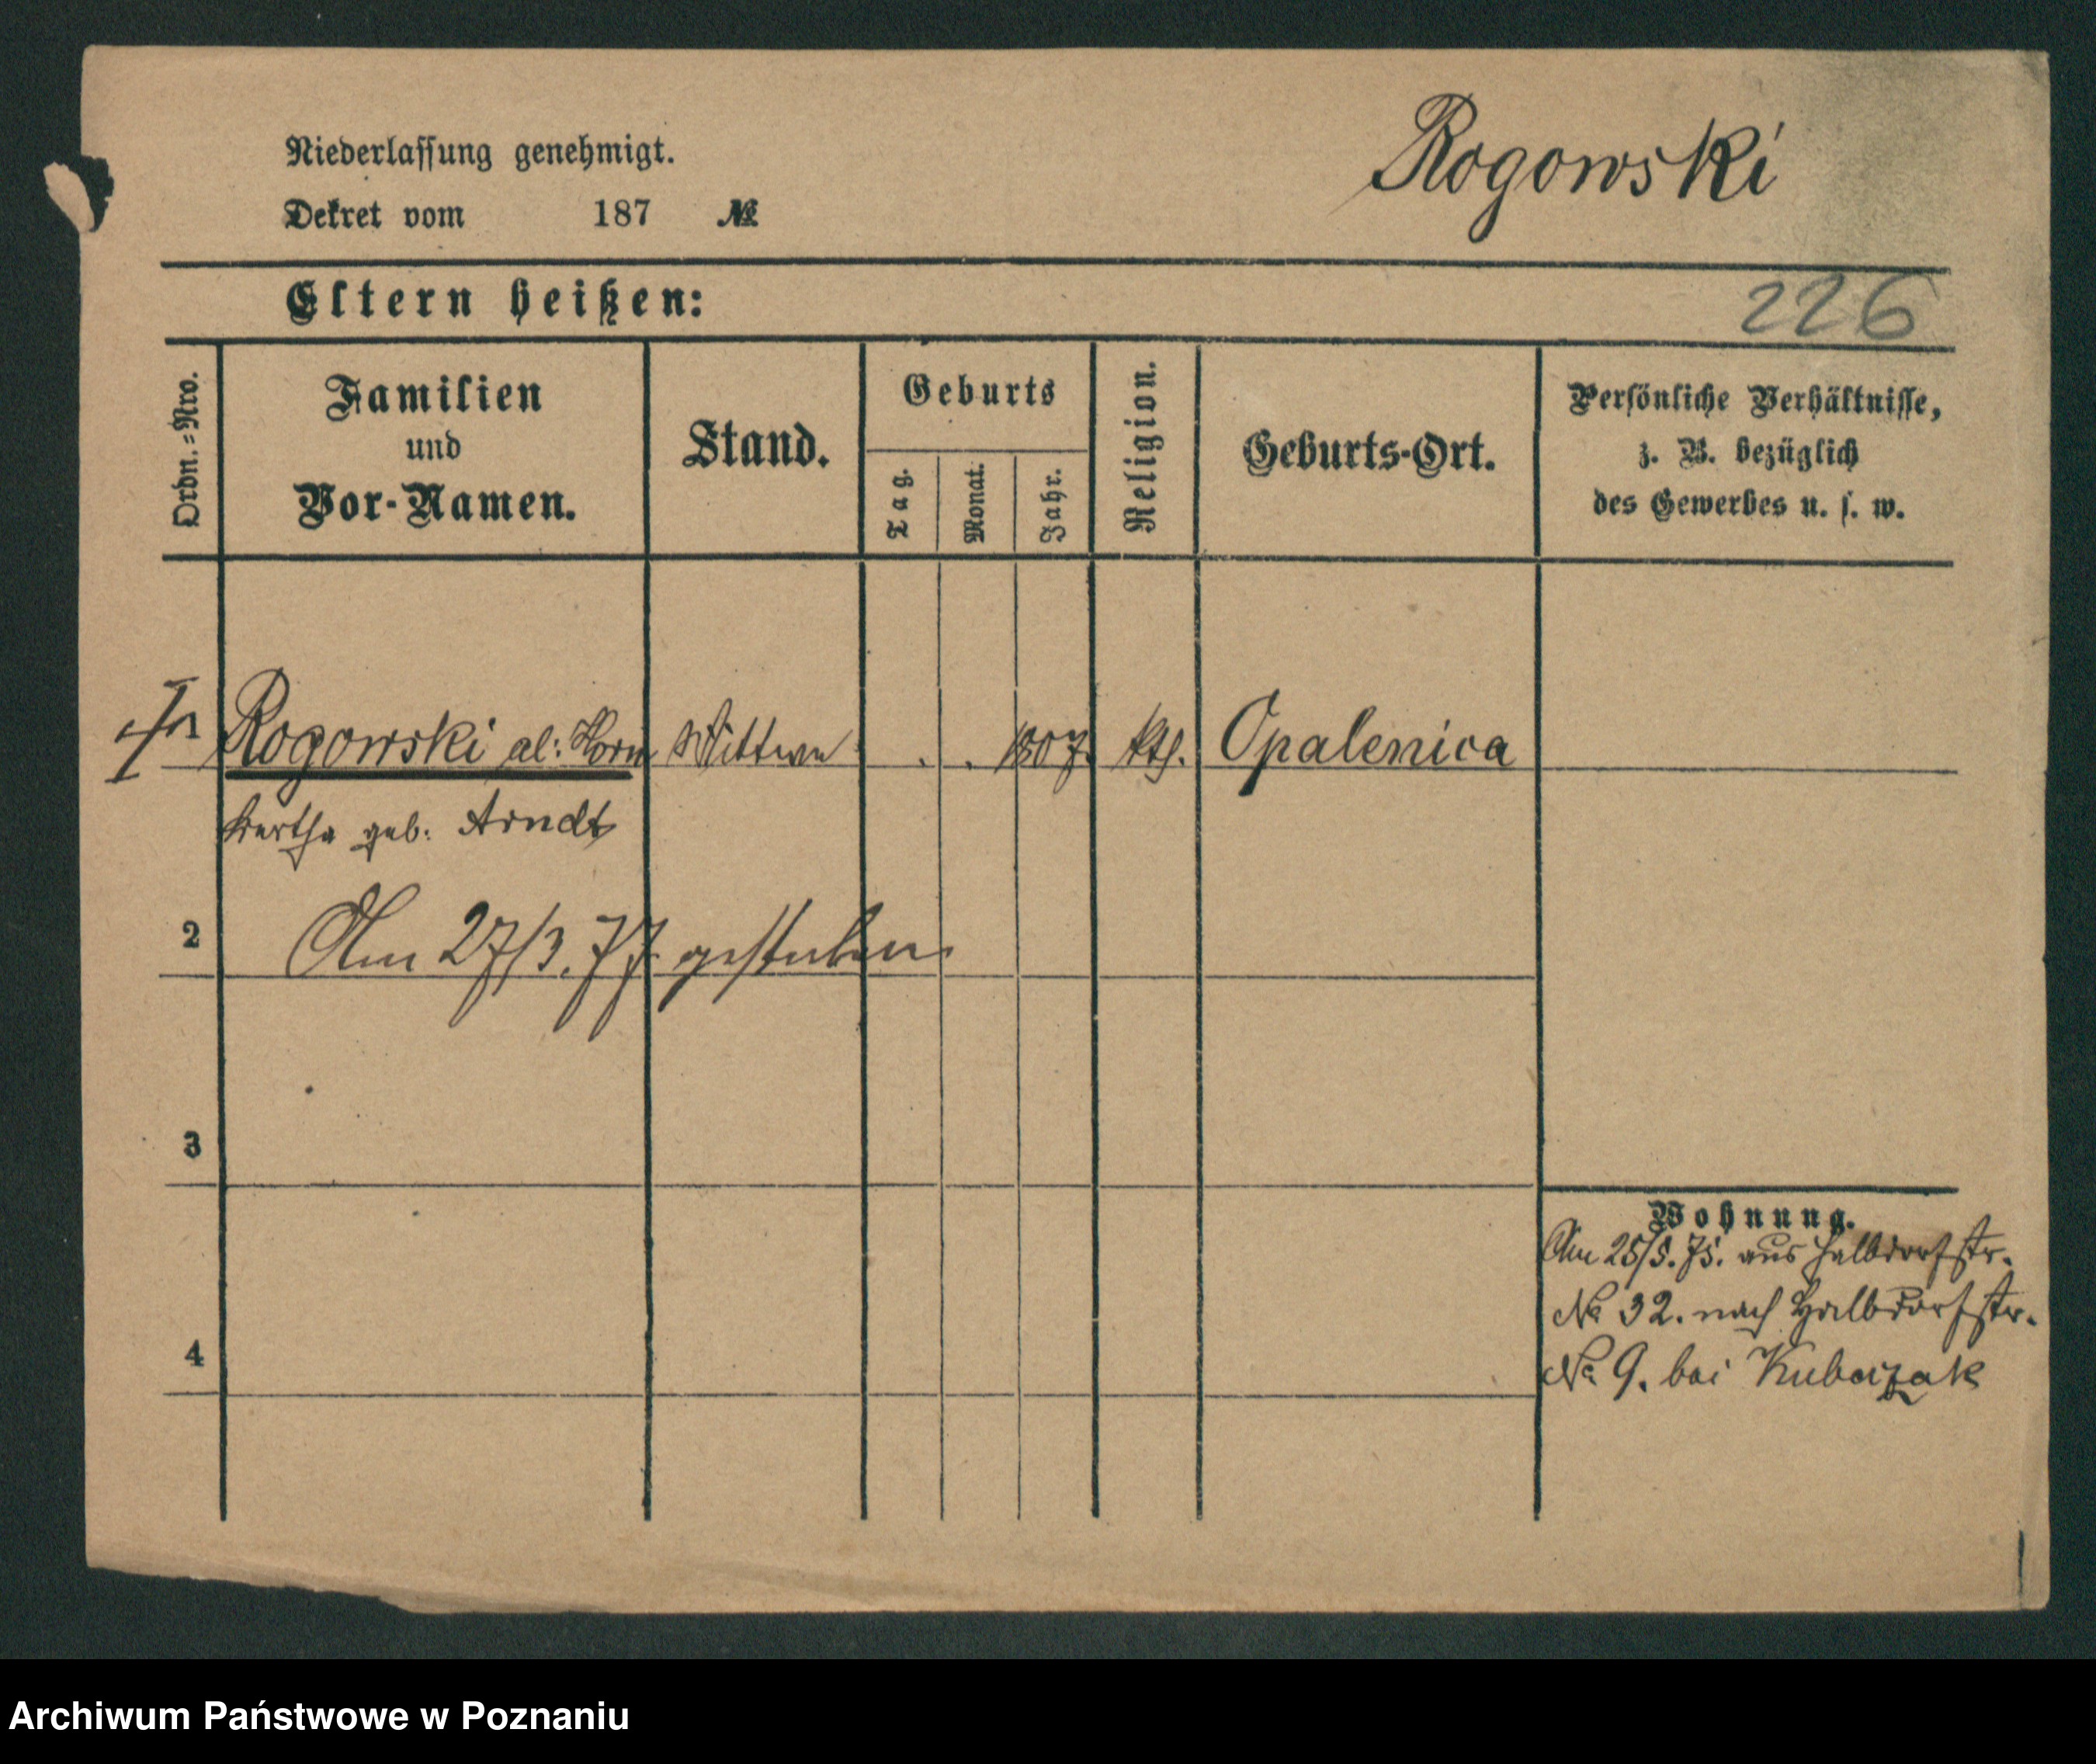 Niederlassung genehmigt.
Rogowski
Dekret vom 187 №
Eltern heißen:
226
Ordn.=Nro.
Familien
und
Vor-Namen.
Stand.
Geburts
Tag.
Monat.
Jahr.
Religion.
Geburts-Ort.
Persönliche Verhältnisse,
z. B. bezüglich
des Gewerbes u. s. w.
Rogowski al: Horn Wittwe . . 1807. kth. Opalenica
Bertha geb: Arndt
2 Am 27/3. 77. gestorben
3
Wohnung.
Am 25/5. 75. aus Halbdorfstr.
№ 32. nach Halbdorfstr.
4
№ 9. bei Kubaizak
Archiwum Państwowe w Poznaniu